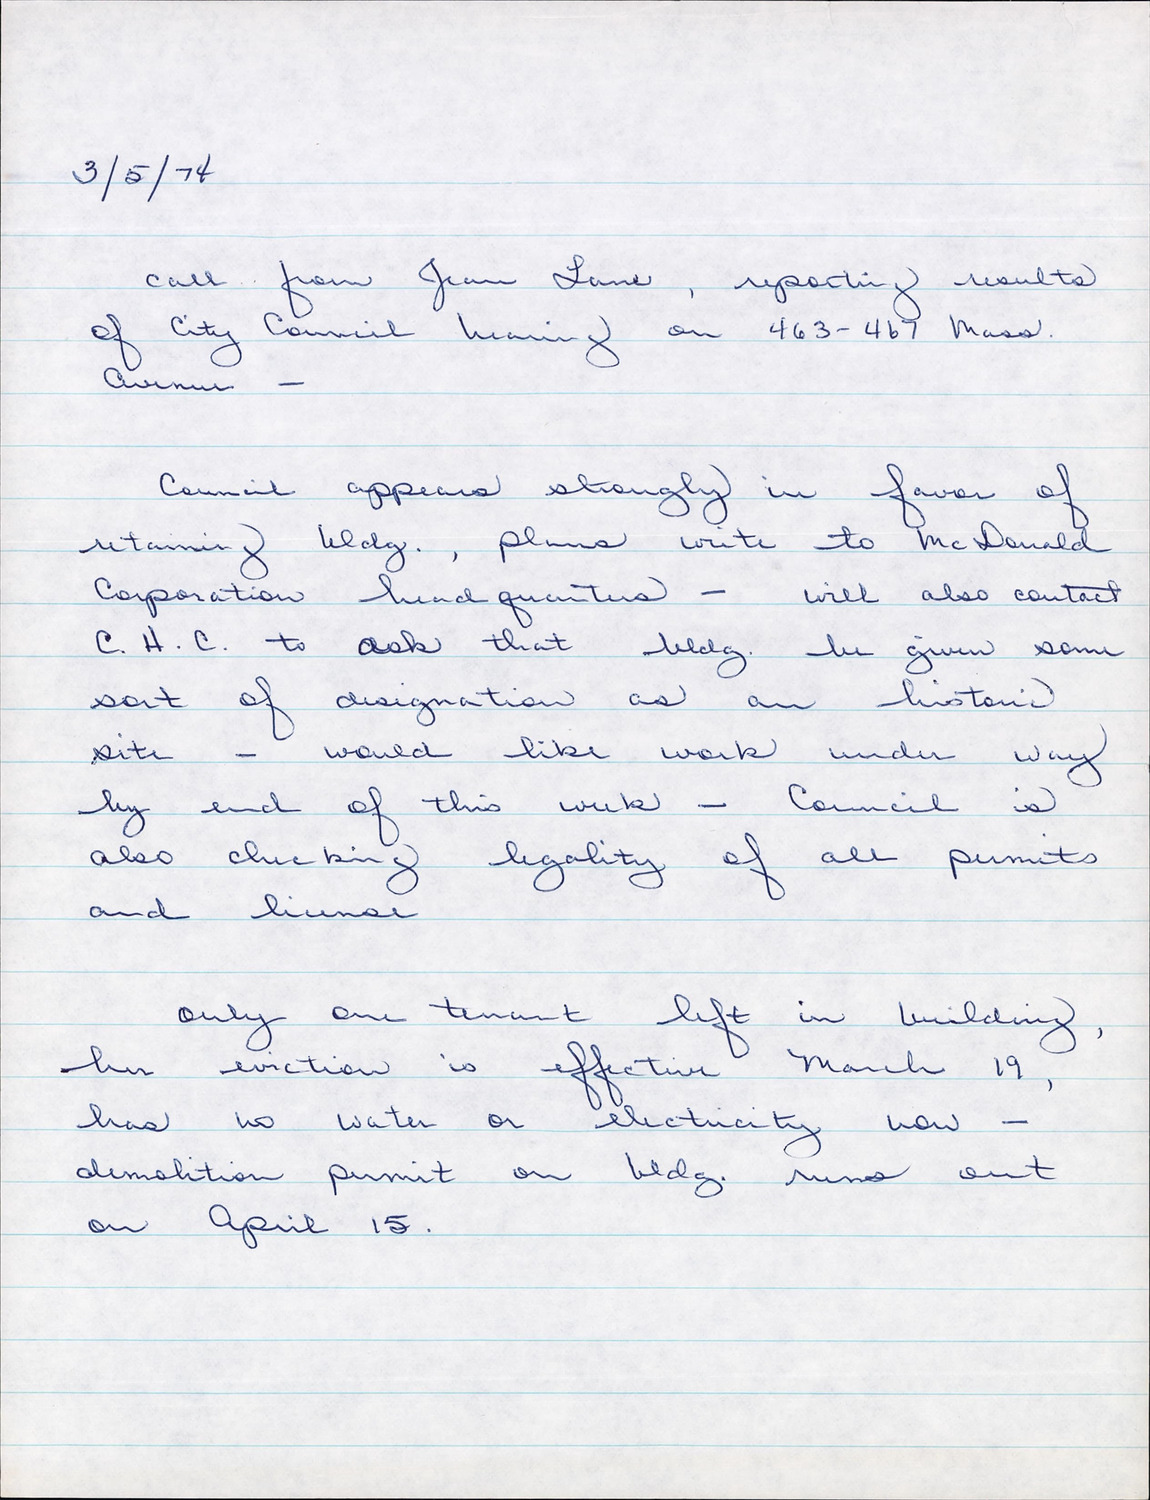 3/5/74
call from Jean Lane, reporting results
of City Council hearing on 463-467 Mass.
Avenue —
Council appears strongly in favor of
retaining bldg., plans write to McDonald
Corporation headquarters — will also contact
C.H.C. to ask that bldg. be given some
sort of designation as an historic
site — would like work under way
by end of this week — Council is
also checking legality of all permits
and license
only one tenant left in building,
her eviction is effective March 19,
has no water or electricity now —
demolition permit on bldg. runs out
on April 15.